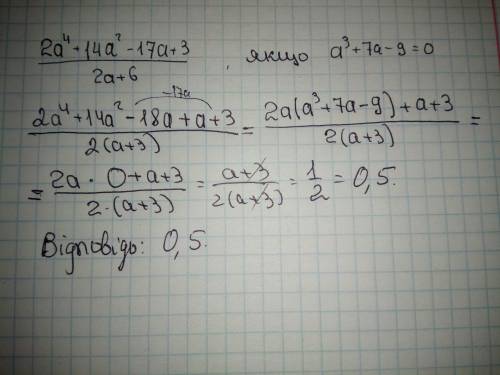 2a⁴+14a²-17a+3 / 2a+6 , якщо a³+7a-9=0
-17a
2a⁴+14a²-18a+a+3 / 2(a+3) = 2a(a³+7a-9)+a+3 / 2(a+3) =
= 2a·0+a+3 / 2·(a+3) = a+3 / 2(a+3) = 1/2 = 0,5.
Відповідь: 0,5.